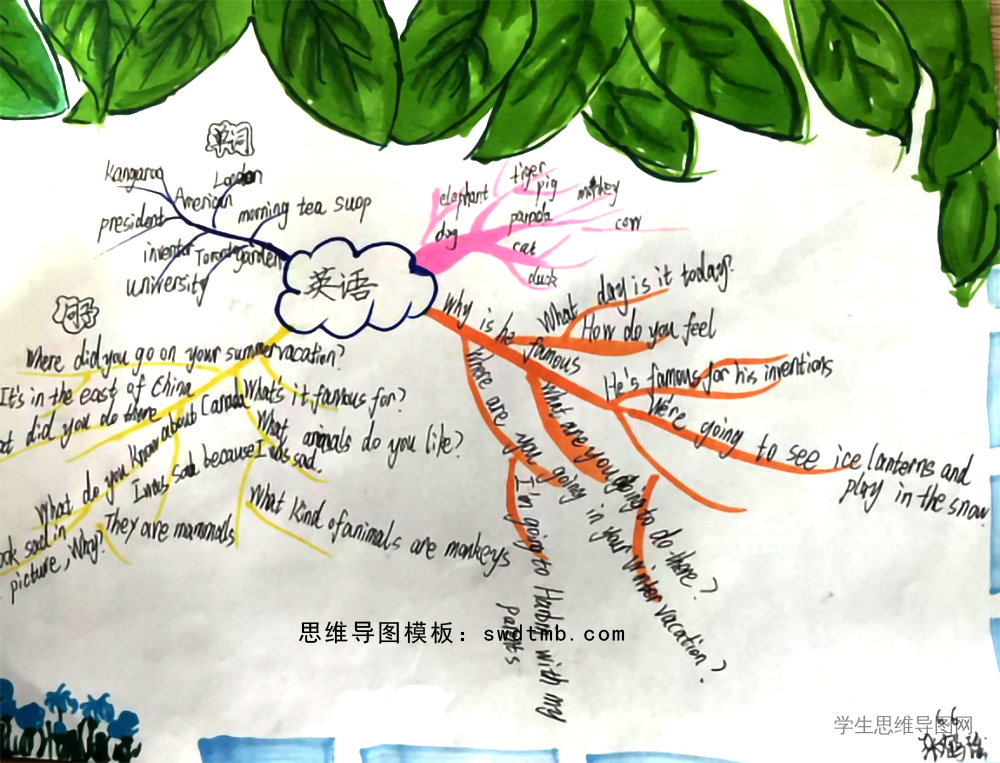 单词
Kangaroo
London
American
president
morning tea suop
inventor
Toronto
garden
university
elephant
tiger
pig
monkey
panda
cow
dog
cat
duck
英语
句子
Where did you go on your summer vacation?
It's in the east of China
at did you do there
What do you know about Canada
What's it famous for?
What animals do you like?
I was sad because I was sad.
ook sad in
picture, Why?
They are mammals
What kind of animals are monkeys
Why is he famous
What day is it today?
How do you feel
He's famous for his inventions
We're going to see ice lanterns and
play in the snow
Where are you going in your winter vacation?
What are you going to do there?
I'm going to Harbin with my
parents
思维导图模板：swdtmb.com
学生思维导图网
6.6